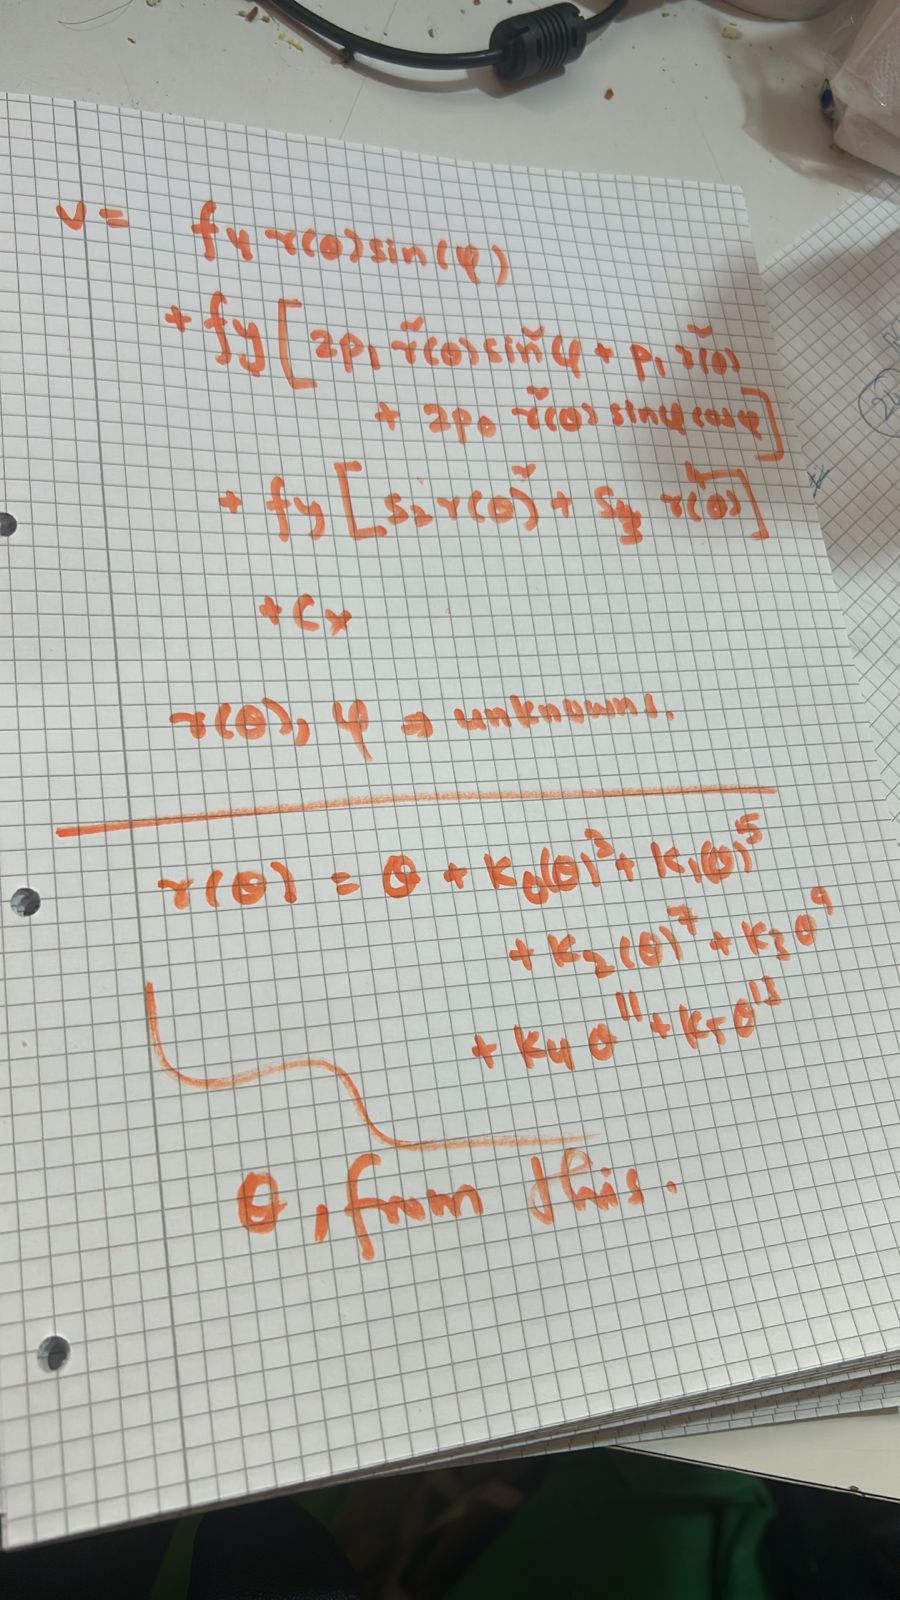 v = fy r(θ) sin(φ)
+ fy [ 2p₁ r²(θ) sin²φ + p₁ r²(θ)
+ 2p₀ r²(θ) sinφ cosφ ]
+ fy [ S₂ r(θ)² + S₃ r(θ)⁴ ]
+ Cx
r(θ), φ → unknowns.
r(θ) = θ + K₀(θ)³ + K₁(θ)⁵
+ K₂(θ)⁷ + K₃θ⁹
+ K₄θ¹¹ + K₅θ¹³
θ, from this.